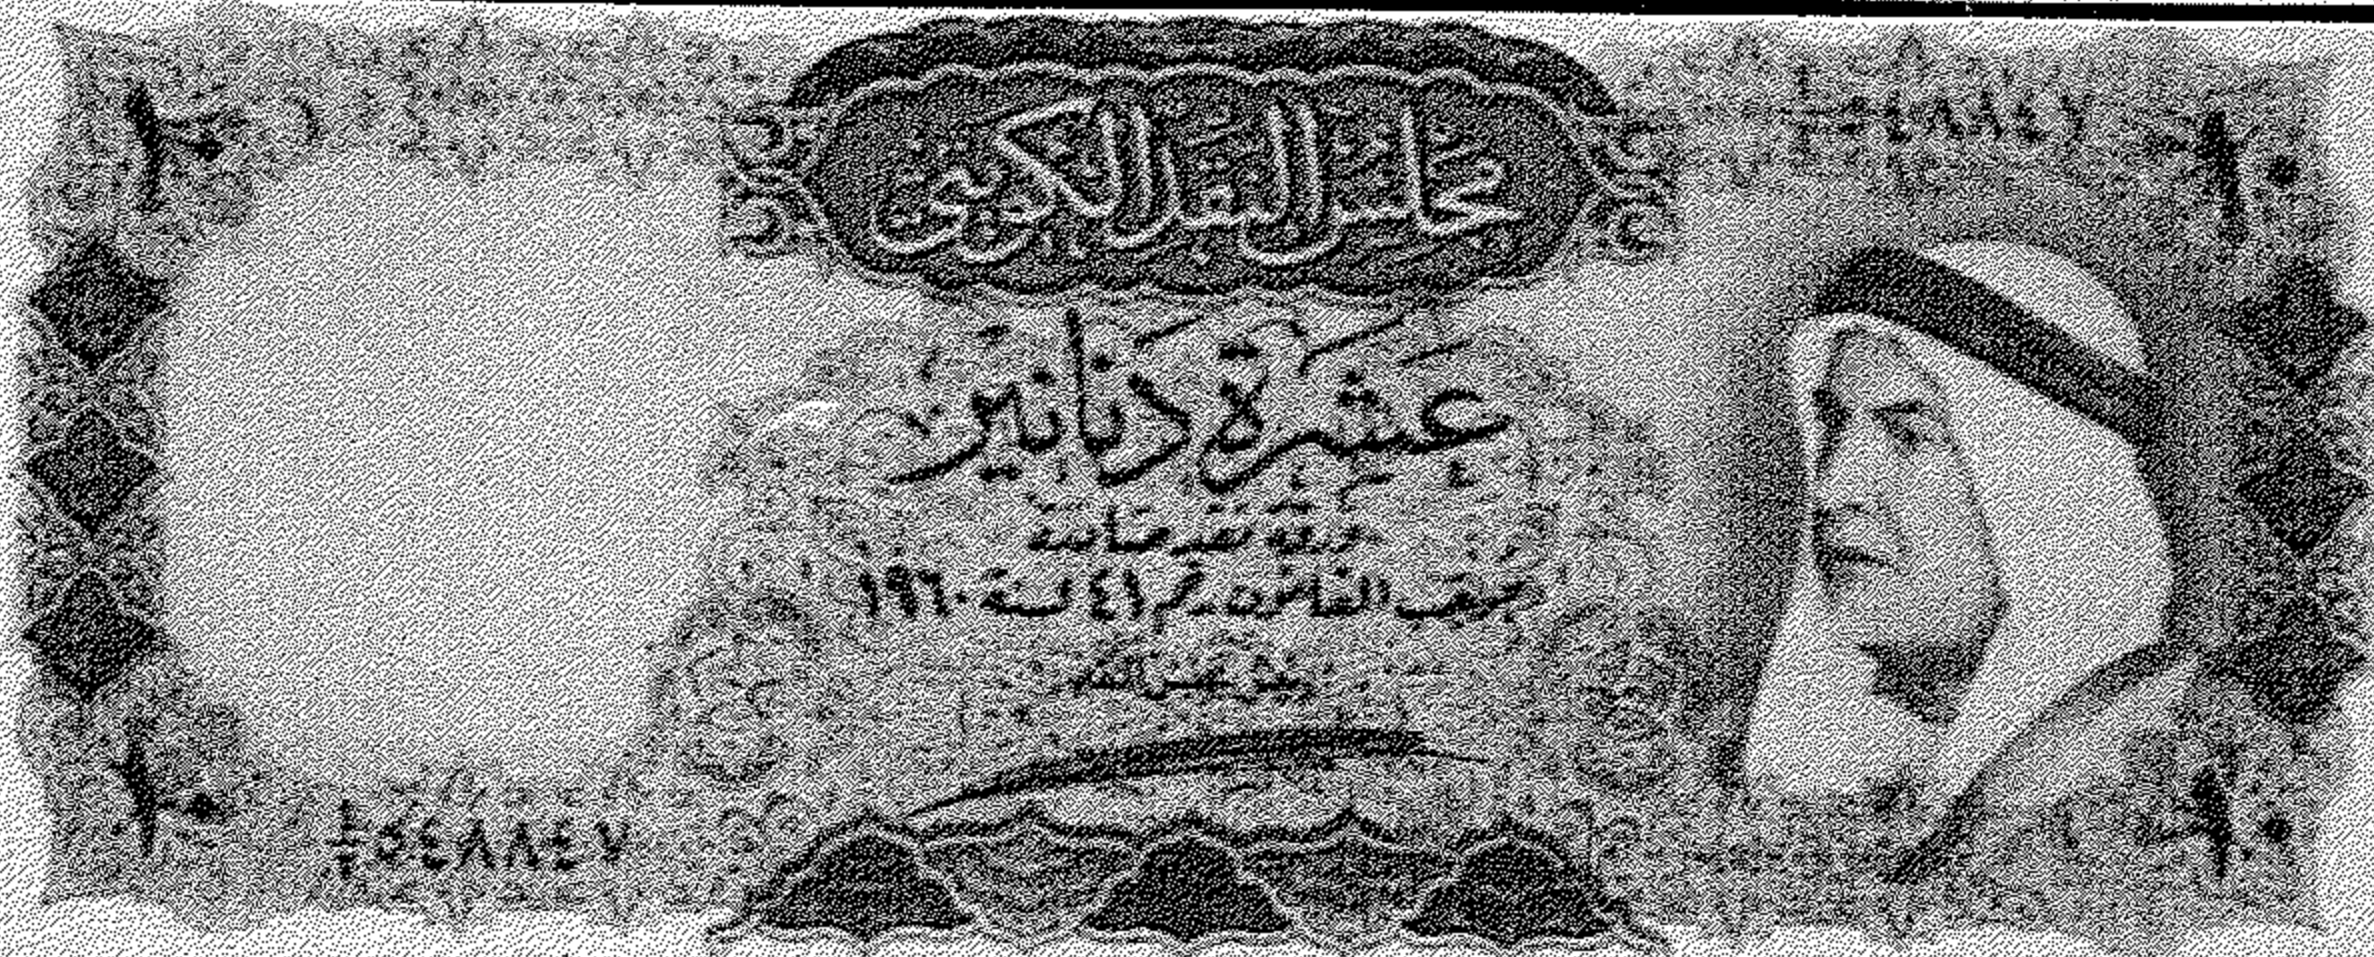 ١٠ ١٠
مجلس النقد الكويتي
عشرة دنانير
ورقة نقد صادرة
بموجب القانون رقم ٤١ لسنة ١٩٦٠
رئيس مجلس النقد
٥٤٨٨٤٧
١٠ ١٠